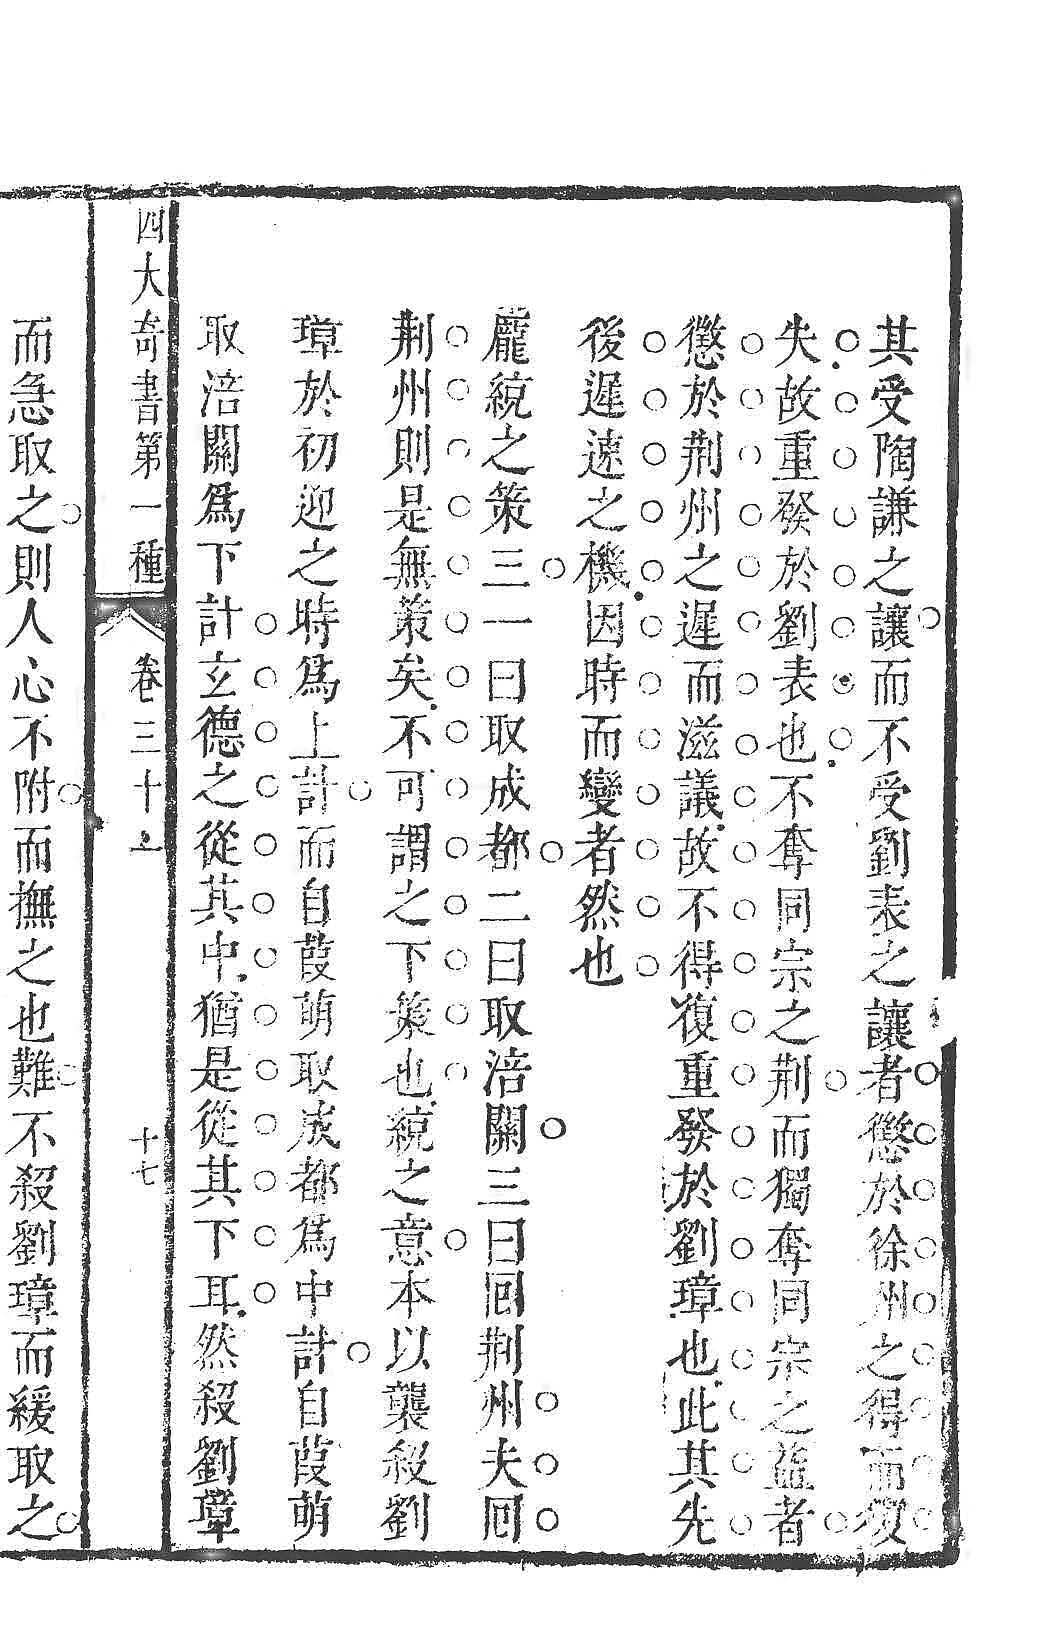 其受陶謙之讓而不受劉表之讓者懲於徐州之得而復
失故重發於劉表也不奪同宗之荆而獨奪同宗之益者
懲於荆州之遲而滋議故不得復重發於劉璋也此其先
後遲速之機因時而變者然也
龐統之策三一曰取成都二曰取涪關三曰回荆州夫回
荆州則是無策矣不可謂之下策也統之意本以襲殺劉
璋於初迎之時爲上計而自葭萌取成都爲中計自葭萌
取涪關爲下計玄德之從其中猶是從其下耳然殺劉璋
四大奇書第一種 卷三十 十七
而急取之則人心不附而撫之也難不殺劉璋而緩取之